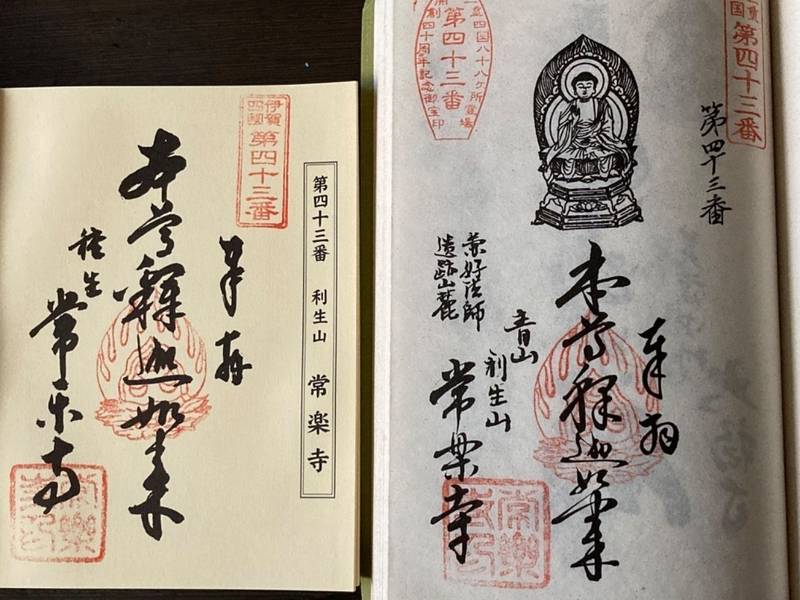 第四十三番 利生山 常楽寺
伊賀
四國
第四十三番
奉拝
本尊釋迦如来
種生
常楽寺
国
第四十三番
第四十三番
四国八十八ヶ所霊場
第四十三番
創四十周年記念御宝印
奉拝
本尊釋迦如来
青山
利生山
常楽寺
兼好法師
遺跡山麓
常樂